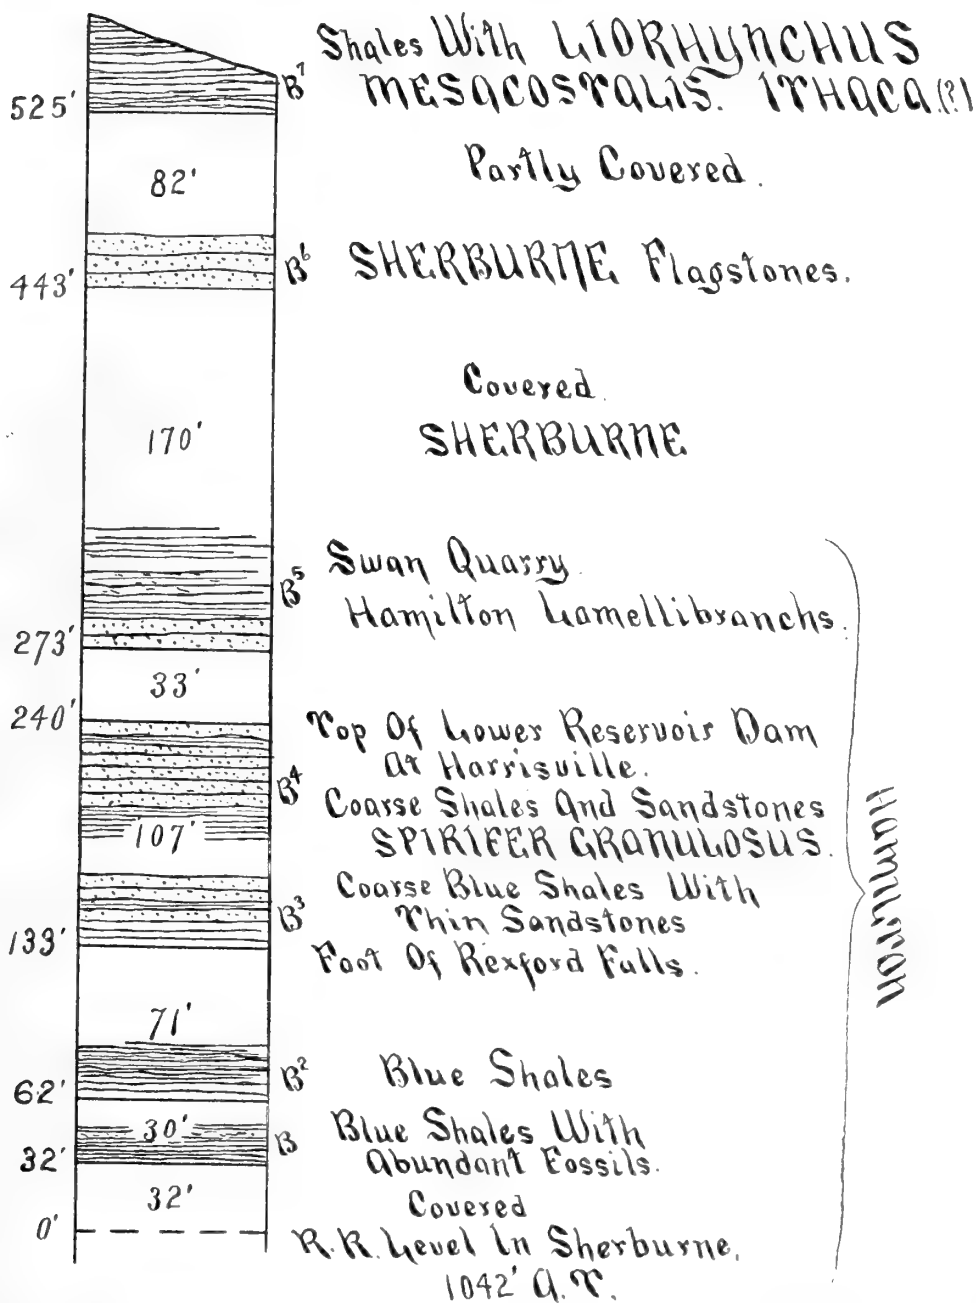 Shales With LIORHYNCHUS
MESACOSTALIS. ITHACA.(?)
B⁷
525'
82'
Partly Covered.
B⁶
SHERBURNE Flagstones.
443'
Covered.
170'
SHERBURNE
Swan Quarry.
B⁵
Hamilton Lamellibranchs.
273'
33'
240'
Top Of Lower Reservoir Dam
At Harrisville.
B⁴
Coarse Shales And Sandstones
107'
SPIRIFER GRANULOSUS.
HAMILTON
Coarse Blue Shales With
B³
Thin Sandstones
133'
Foot Of Rexford Falls.
71'
B²
Blue Shales
62'
30'
B
Blue Shales With
Abundant Fossils.
32'
32'
Covered
0'
R.R. Level In Sherburne,
1042' A.T.